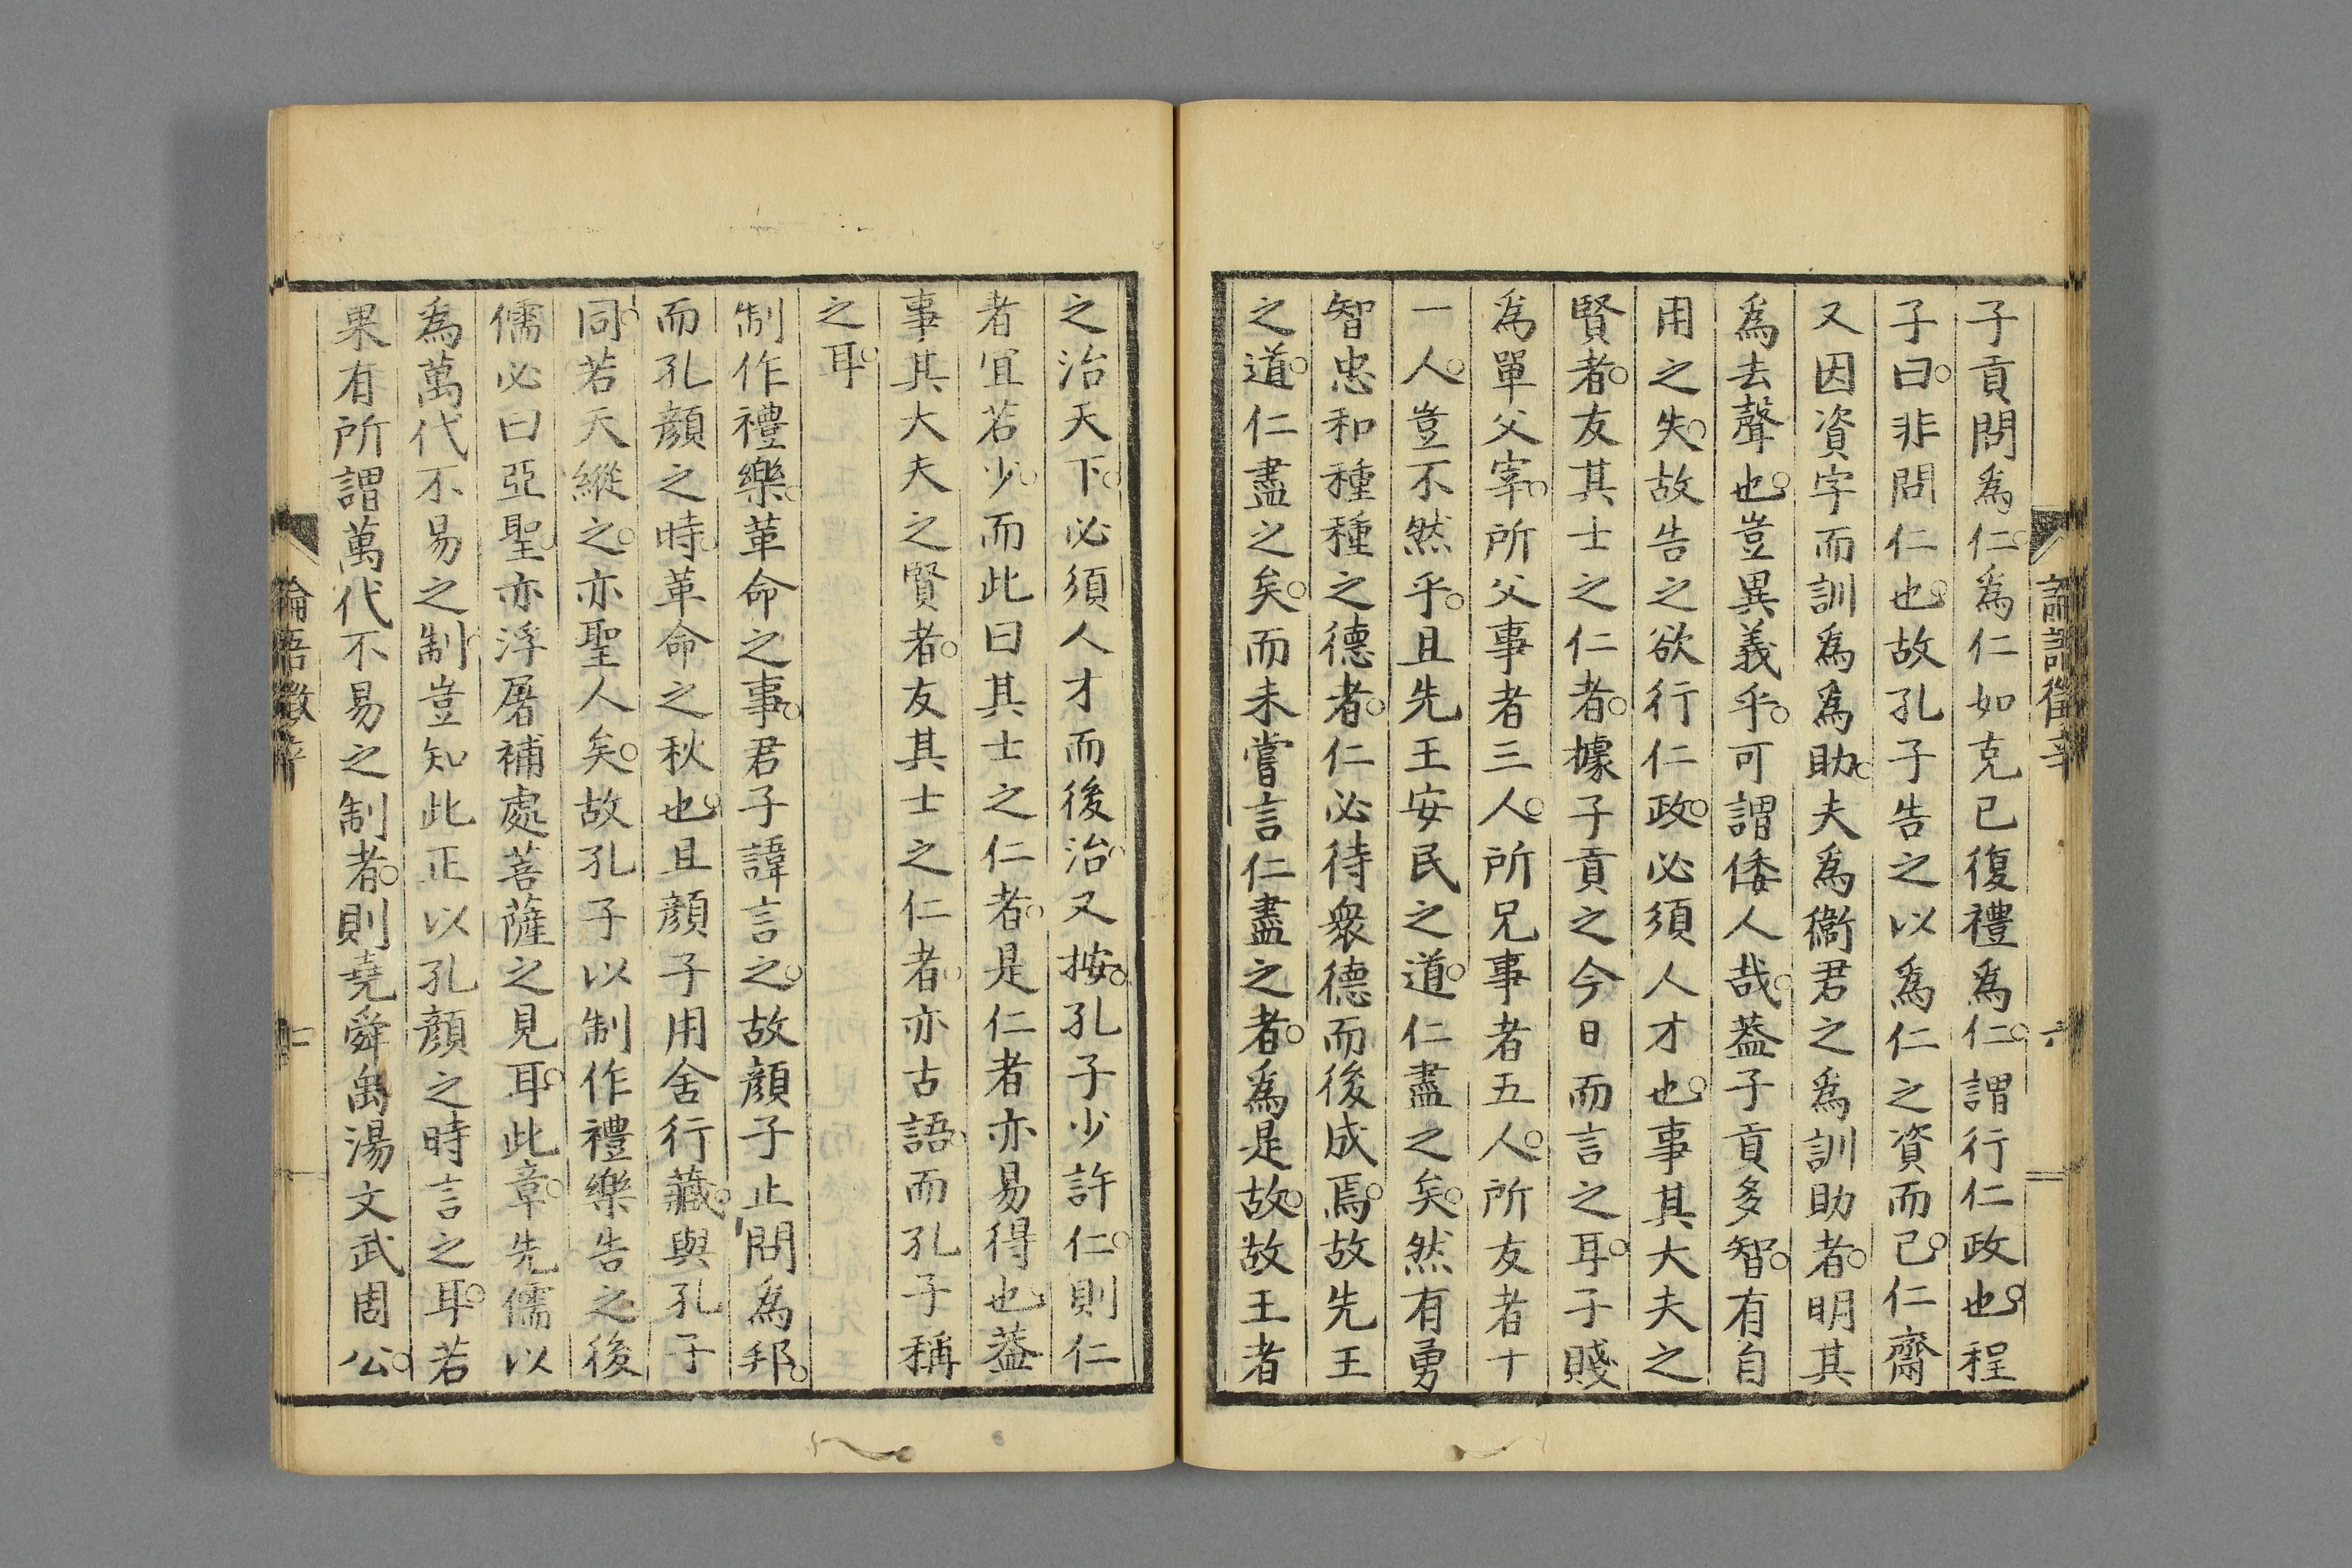 子貢問為仁。為仁如克已復禮為仁。謂行仁政也。程
子曰。非問仁也。故孔子告之以為仁之資而已。仁齋
又因資字而訓為為助。夫為衞君之為訓助者。明其
為去聲也。豈異義乎。可謂倭人哉。蓋子貢多智。有自
用之失。故告之欲行仁政。必須人才也。事其大夫之
賢者。友其士之仁者。據子貢之今日而言之耳。子賤
為單父宰。所父事者三人。所兄事者五人。所友者十
一人。豈不然乎。且先王安民之道。仁盡之矣。然有勇
智忠和種種之德者。仁必待衆德而後成焉。故先王
之道。仁盡之矣。而未嘗言仁盡之者。為是故。故王者
之治天下。必須人才而後治。又按。孔子少許仁。則仁
者宜若少。而此曰其士之仁者。是仁者亦易得也。蓋
事其大夫之賢者。友其士之仁者。亦古語。而孔子稱
之耳。
制作禮樂。革命之事。君子諱言之。故顏子止問為邦。
而孔顏之時。革命之秋也。且顏子用舍行藏。與孔子
同。若天縱之。亦聖人矣。故孔子以制作禮樂告之。後
儒必曰亞聖。亦浮屠補處菩薩之見耳。此章。先儒以
為萬代不易之制。豈知此正以孔顏之時言之耳。若
果有所謂萬代不易之制者。則堯舜禹湯文武周公。
論語徵辛
六
論語徵辛
七